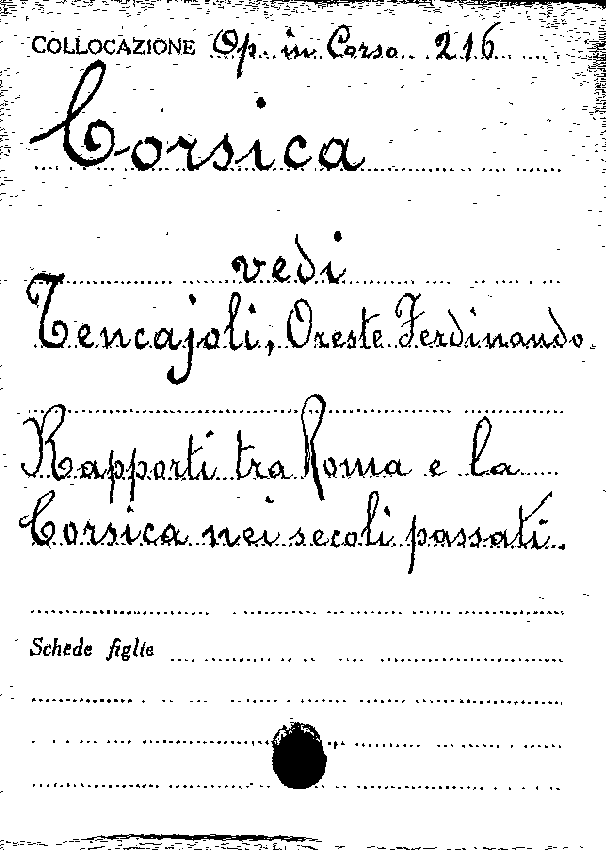 COLLOCAZIONE Op. in Corso 216
Corsica
vedi
Tencajoli, Oreste Ferdinando.
Rapporti tra Roma e la
Corsica nei secoli passati.
Schede figlie